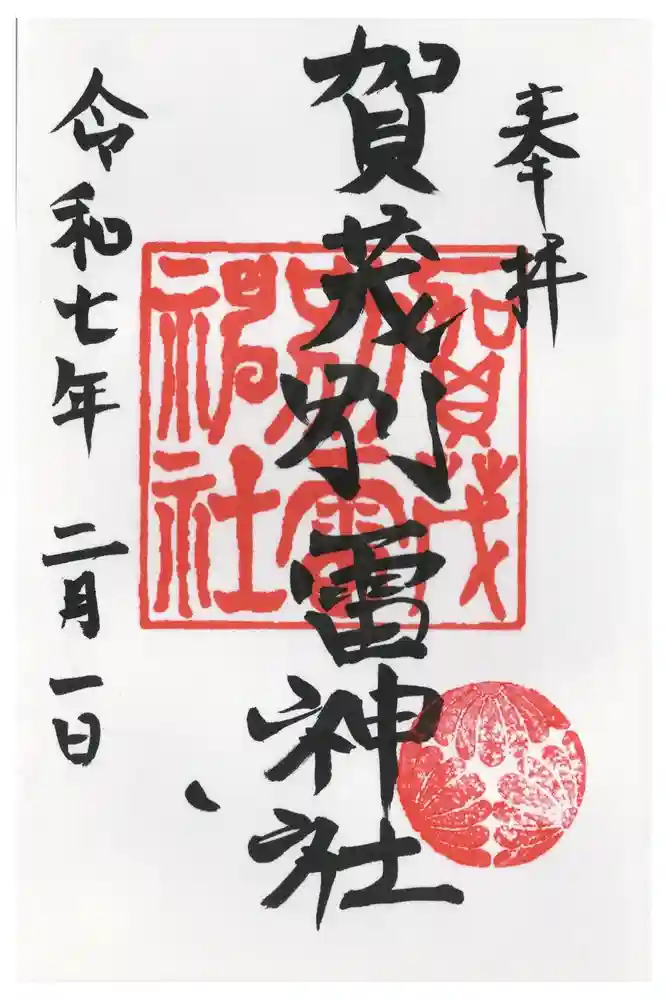 奉拝
賀茂別雷神社
令和七年二月一日
賀茂別雷神社